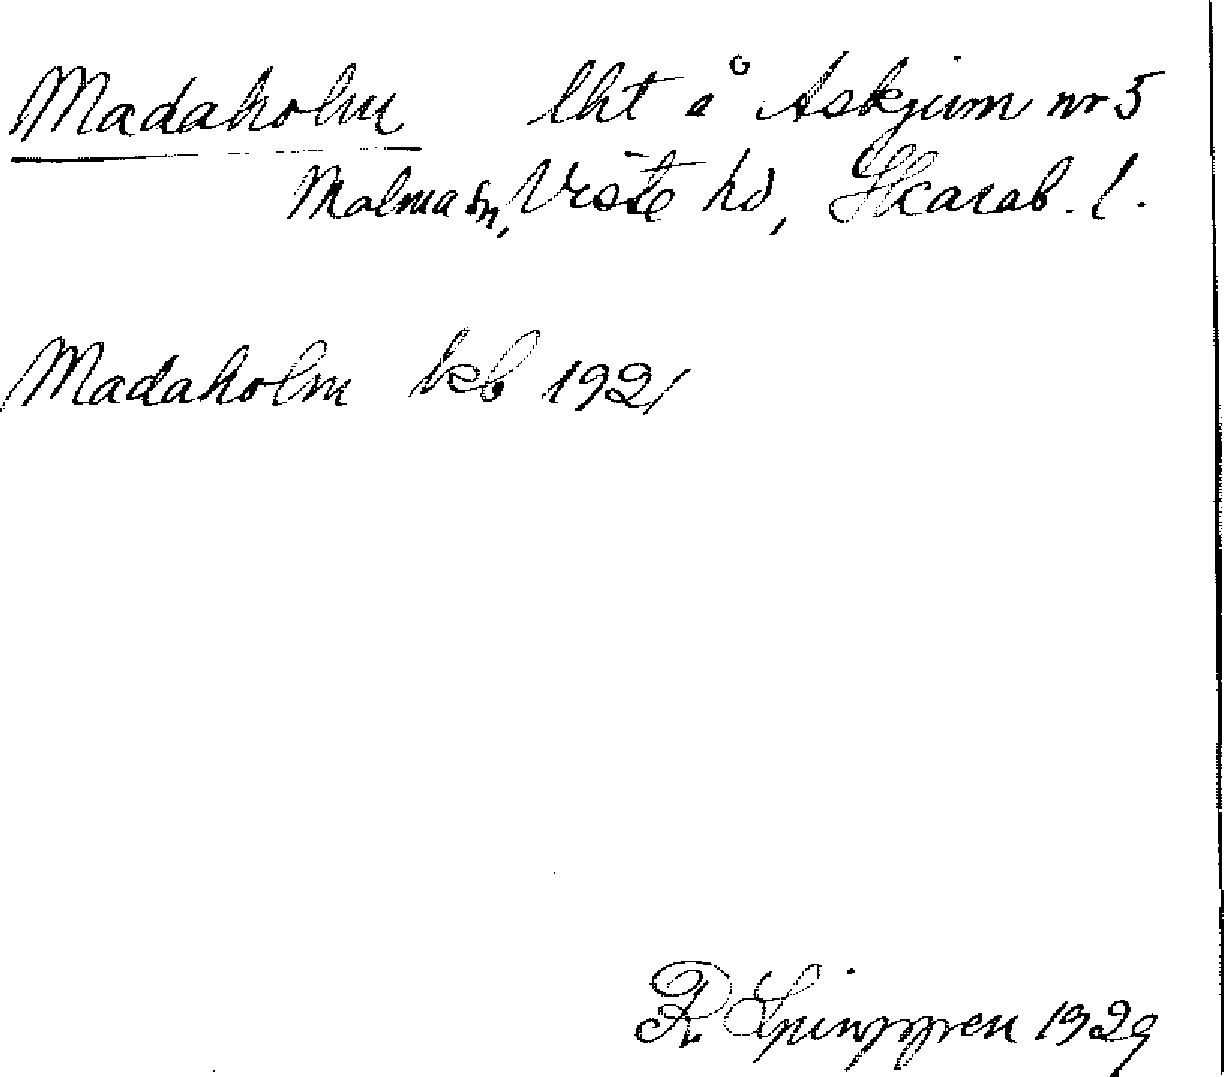 Madaholm lht å Askjum nr 5
Malma sn, Viste hd, Skarab. l.
Madaholm kb 1921
R Ljunggren 1929